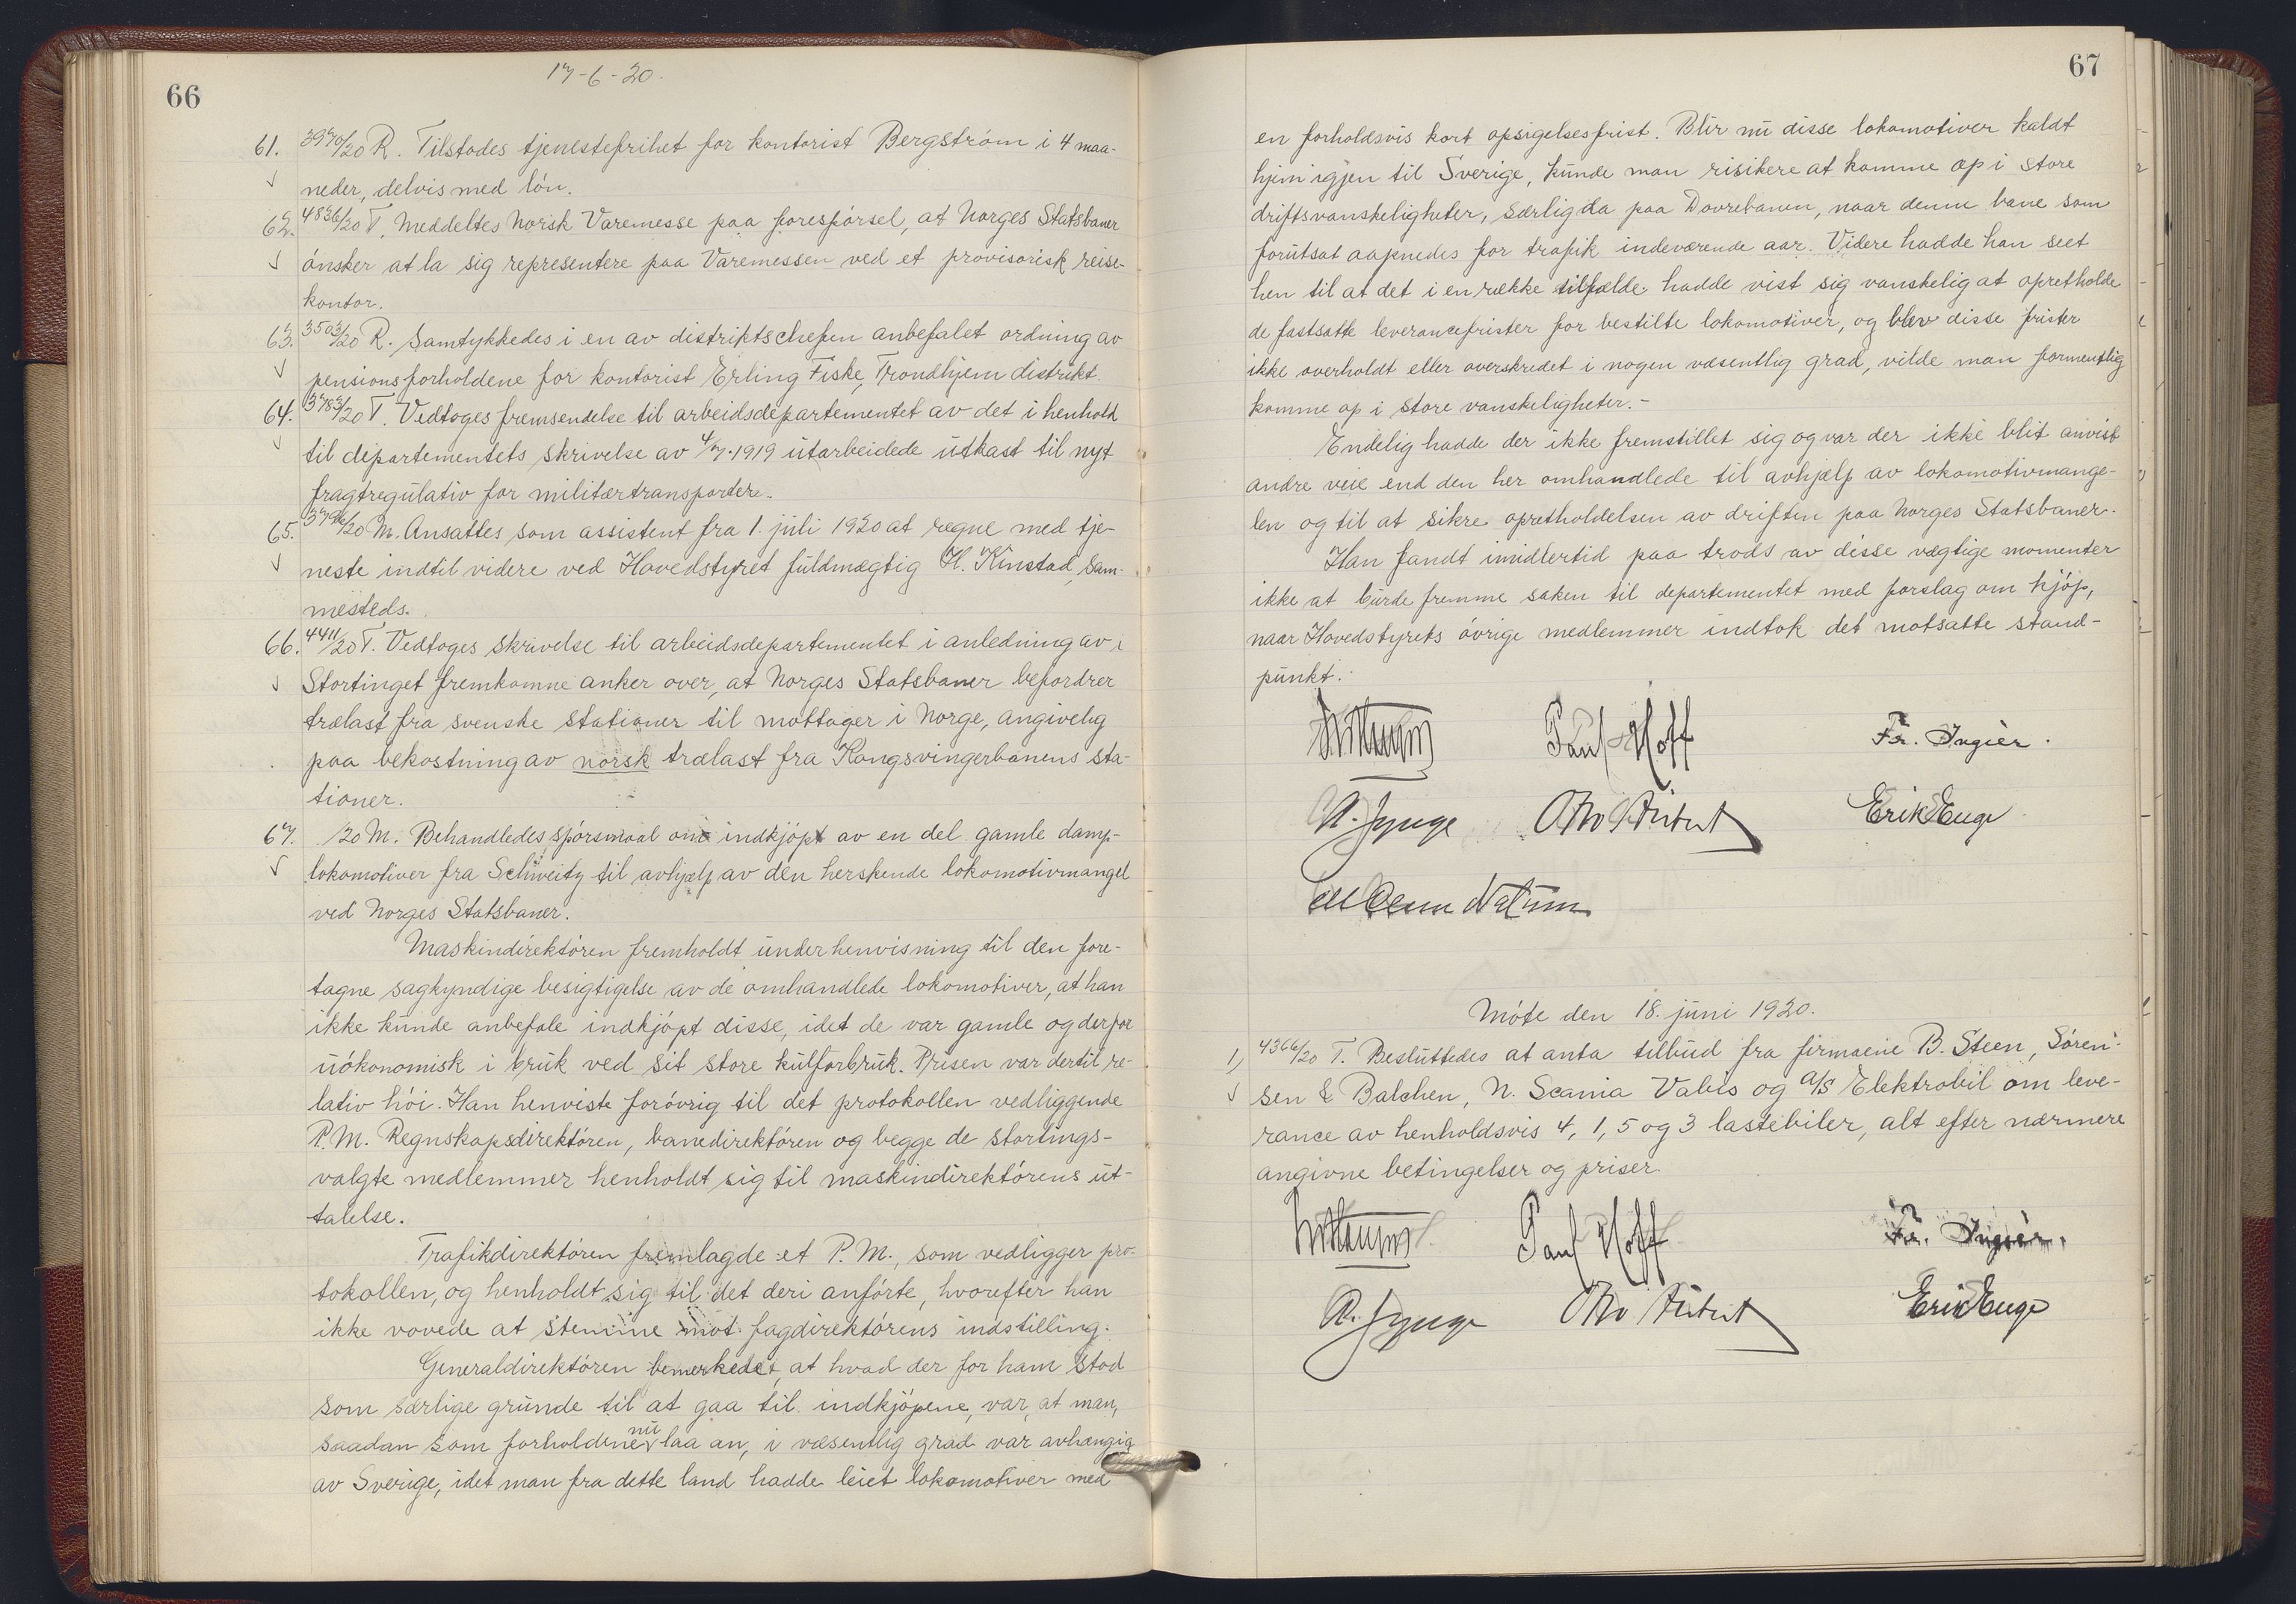 66
17-6-20.
61. 3970/20 R. Tilstodes tjenestefrihet for kontorist Bergström i 4 maa-
neder, delvis med lön.
62. 4836/20 T. Meddeltes Norsk Varemesse paa forespörsel, at Norges Statsbaner
önsker at la sig representere paa Varemessen ved et provisorisk reise-
kontor.
63. 3503/20 R. Samtykkedes i en av distriktschefen anbefalet ordning av
pensionsforholdene for kontorist Erling Fiske, Trondhjem distrikt.
64. 3783/20 T. Vedtoges fremsendelse til arbeidsdepartementet av det i henhold
til departementets skrivelse av 4/7.1919 utarbeidede utkast til nyt
fragtregulativ for militærtransporter.
65. 3796/20 M. Ansattes som assistent fra 1. juli 1920 at regne med tje-
neste indtil videre ved Hovedstyret fuldmægtig H. Kinstad, sam-
mesteds.
66. 4411/20 T. Vedtoges skrivelse til arbeidsdepartementet i anledning av i
Stortinget fremkomne anker over, at Norges Statsbaner befordrer
trælast fra svenske stationer til mottager i Norge, angivelig
paa bekostning av norsk trælast fra Kongsvingerbanens sta-
tioner.
67. /20 M. Behandledes spörsmaal om indkjöp av en del gamle damp-
lokomotiver fra Schweitz til avhjælp av den herskende lokomotivmangel
ved Norges Statsbaner.
Maskindirektören fremholdt under henvisning til den fore-
tagne sagkyndige besigtigelse av de omhandlede lokomotiver, at han
ikke kunde anbefale indkjöpt disse, idet de var gamle og derfor
uökonomisk i bruk ved sit store kulforbruk. Prisen var dertil re-
lativ höi. Han henviste forövrig til det protokollen vedliggende
P.M. Regnskapsdirektören, banedirektören og begge de stortings-
valgte medlemmer henholdt sig til maskindirektörens ut-
talelse.
Trafikdirektören fremlagde et P.M., som vedligger pro-
tokollen, og henholdt sig til det deri anförte, hvorefter han
ikke vovede at stemme mot fagdirektörens indstilling.
Generaldirektören bemerkedet, at hvad der for ham stod
som særlige grunde til at gaa til indkjöpene, var, at man,
saadan som forholdene nu laa an, i væsentlig grad var avhængig
av Sverige, idet man fra dette land hadde leiet lokomotiver med
67
en forholdsvis kort opsigelsesfrist. Blir nu disse lokomotiver kaldt
hjem igjen til Sverige, kunde man risikere at komme op i store
driftsvanskeligheter, særlig da paa Dovrebanen, naar denne bane som
forutsat aapnedes for trafik indeværende aar. Videre hadde han seet
hen til at det i en række tilfælde hadde vist sig vanskelig at opretholde
de fastsatte leverancefrister for bestilte lokomotiver, og blev disse frister
ikke overholdt eller overskredet i nogen væsentlig grad, vilde man formentlig
komme op i store vanskeligheter.-
Endelig hadde der ikke fremstillet sig og var der ikke blit anvist
andre veie end den her omhandlede til avhjælp av lokomotivmange-
len og til at sikre opretholdelsen av driften paa Norges Statsbaner.
Han fandt imidlertid paa trods av disse vægtige momenter
ikke at burde fremme saken til departementet med forslag om kjöp,
naar Hovedstyrets övrige medlemmer indtok det motsatte stand-
punkt.
Paul Hoff Fr. Ingier.
Erik Enge
Möte den 18. juni 1920.
1, 4366/20 T. Besluttedes at anta tilbud fra firmaene B. Steen, Sören-
sen & Balchen, N. Scania Vabis og A/S Elektrobil om leve-
rance av henholdsvis 4, 1, 5 og 3 lastebiler, alt efter nærmere
angivne betingelser og priser.
Paul Hoff Fr. Ingier.
Erik Enge